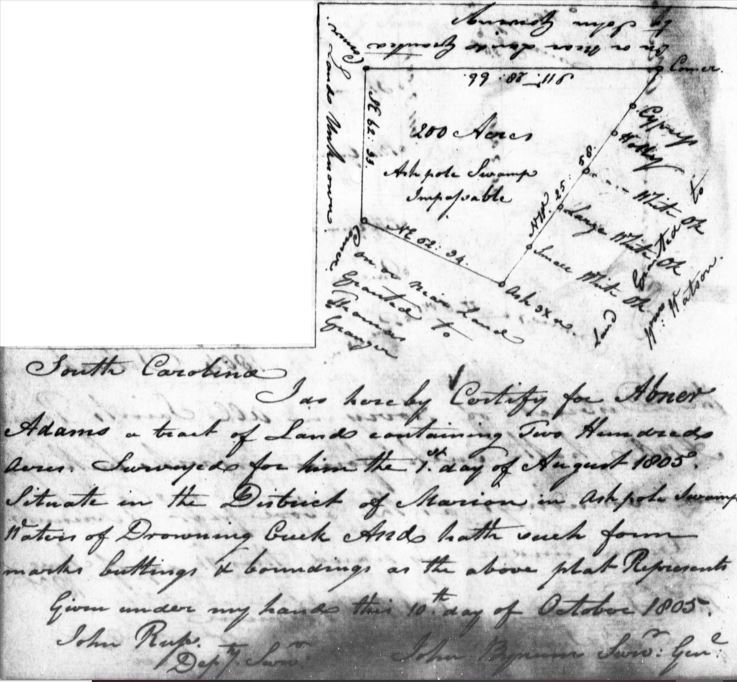 on or near Lands Granted
by John Downing
Corner
Lands Unknown
S 11 : 28 : 66
Corner
N E 62 : 33
200 Acres
Ashpole Swamp
Impassable
Cypress
Holly
White Ok
Large White Ok
Small White Ok
N W 25 : 58
N E 62 : 34
Corner
Ash 3X n
on or near Land
Granted to
Thomas
Granger
Land Granted to
Wm: Watson
South Carolina
I do hereby Certify for Abner
Adams a tract of Lands containing Two Hundreds
Acres. Surveyed for him the 1.st day of August 1805.
Situate in the District of Marion in Ashpole Swamp
Waters of Drowning Creek And hath such form
marks buttings & boundings as the above plat Represents
Given under my hands this 10.th day of October 1805.
John Rup.
Depty. Survr.
John Bynum Survr: Genl